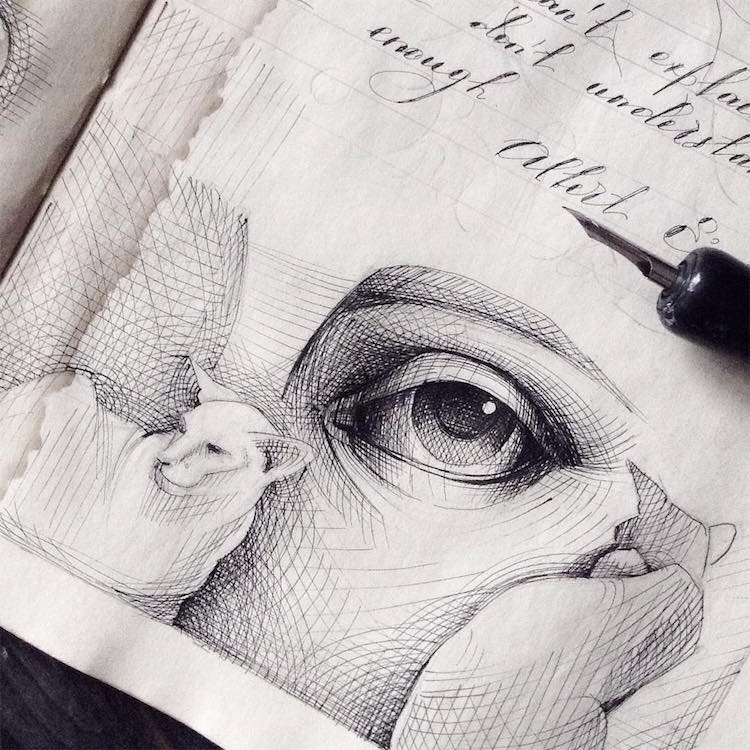 an't explai
don't understa
enough
Albert E